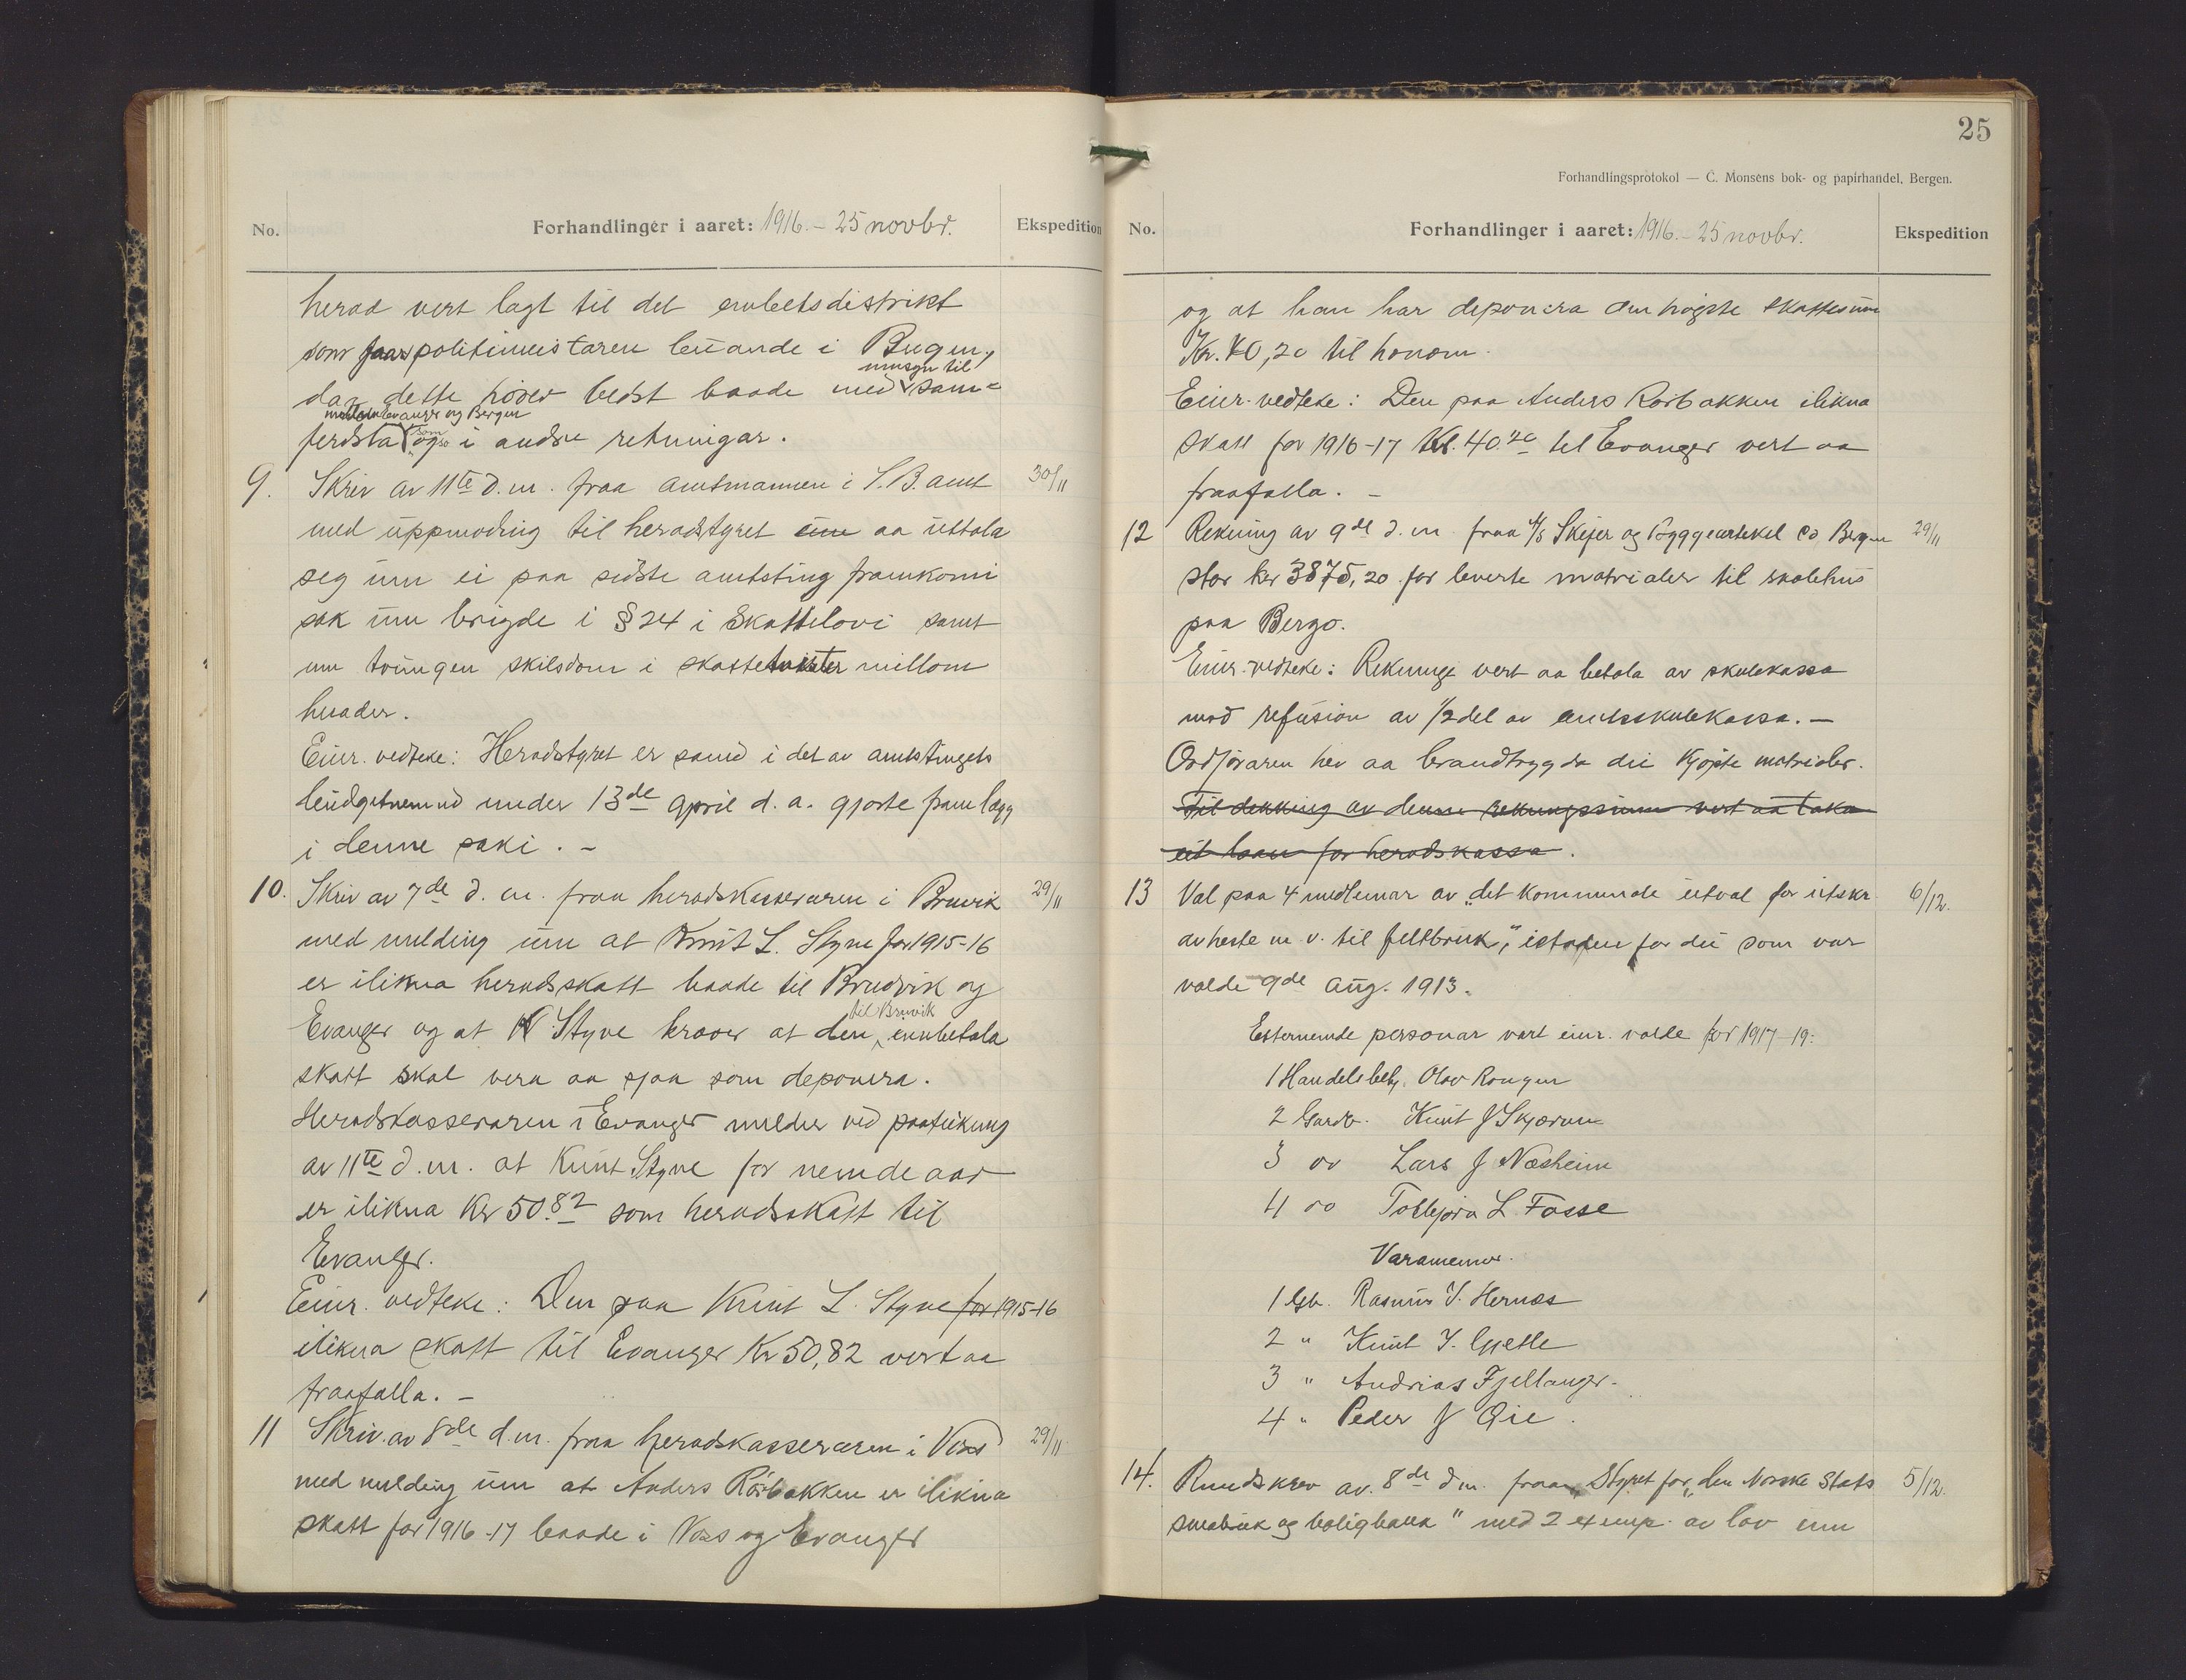 No.
Forhandlinger i aaret: 1916. - 25 novbr.
Ekspedition
herad vert lagt til det embetsdistrikt
som faar politimeistaren buande i Bergen,
umsyn til
da dette høver bedst baade med sam-
millom Evanger og Bergen
ferdsla som ogso i andre retningar.
9. Skriv av 11te d.m. fraa amtmannen i S.B. amt 30/11
med uppmoding til heradstyret um aa uttala
seg um ei paa sidste amtsting framkomi
sak um brigde i § 24 i Skattelovi samt
um tvungen skilsdom i skattetvister millom
herader.
Einr. vedteke: Heradstyret er samd i det av amtstingets
budgetnemnd under 13de april d.a. gjorte framlegg
i denne saki. -
10. Skriv av 7de d.m. fraa heradskasseraren i Bruvik 29/11
med melding um at Knut L. Styve for 1915-16
er ilikna heradsskatt baade til Brudvik og
til Bruvik
Evanger og at K Styve krever at den innbetala
skatt skal vera aa sjaa som deponera.
Heradskasseraren i Evanger melder ved paateikning
av 11te d.m. at Knut Styve for nemde aar
er ilikna Kr 50.82 som heradsskatt til
Evanger.
Einr. vedteke: Den paa Knut L. Styve for 1915-16
ilikna skatt til Evanger Kr 50,82 vert aa
fraafalla. -
11 Skriv av 8de d.m. fraa heradskasseraren i Voss 29/11
med melding um at Anders Rørbakken er ilikna
skatt for 1916-17 baade i Voss og Evanger
25
Forhandlingsprotokol — C. Monsens bok- og papirhandel, Bergen.
No.
Forhandlinger i aaret: 1916. - 25 novbr.
Ekspedition
og at han har deponera den høgste skattesum
Kr. 40,20 til honom.
Einr. vedteke: Den paa Anders Rørbakken ilikna
skatt for 1916-17 Kr. 40.20 til Evanger vert aa
fraafalla. -
12 Rekning av 9de d.m. fraa A/S Skifer og Byggeartikel Co Bergen 29/11
stor kr 3875,20 for leverte matrialer til skulehus
paa Bergo.
Einr. vedteke: Rekningi vert aa betala av skulekassa
mod refusion av 1/2 del av amtsskulekassa. -
Ordføraren hev aa brandtrygda dei kjøpte matrialer.
Til dekking av denne rekningssum vert aa taka
eit laan for heradskassa.
13 Val paa 4 medlemar av "det kommunde utval for utskr. 6/12.
av heste m.v. til feltbruk," istaden for dei som var
valde 9de aug. 1913.
Esternemde personar vart einr. valde for 1917-19:
1 Handelsbetj. Olav Rongen
2 Gardb. Knut J Skjerven
3 do Lars J Næsheim
4 do Torbjørn L Fosse
Varamenner.
1 Gb. Rasmus J. Hernæs
2 " Knut J. Gjelle
3 " Andrias Fjellanger.
4 " Peder J Øie.
14. Rundskriv av 8de d.m. fraa Styret for "den Norske Stats 5/12.
smaabruk og boligbank" med 2 exemp. av lov um